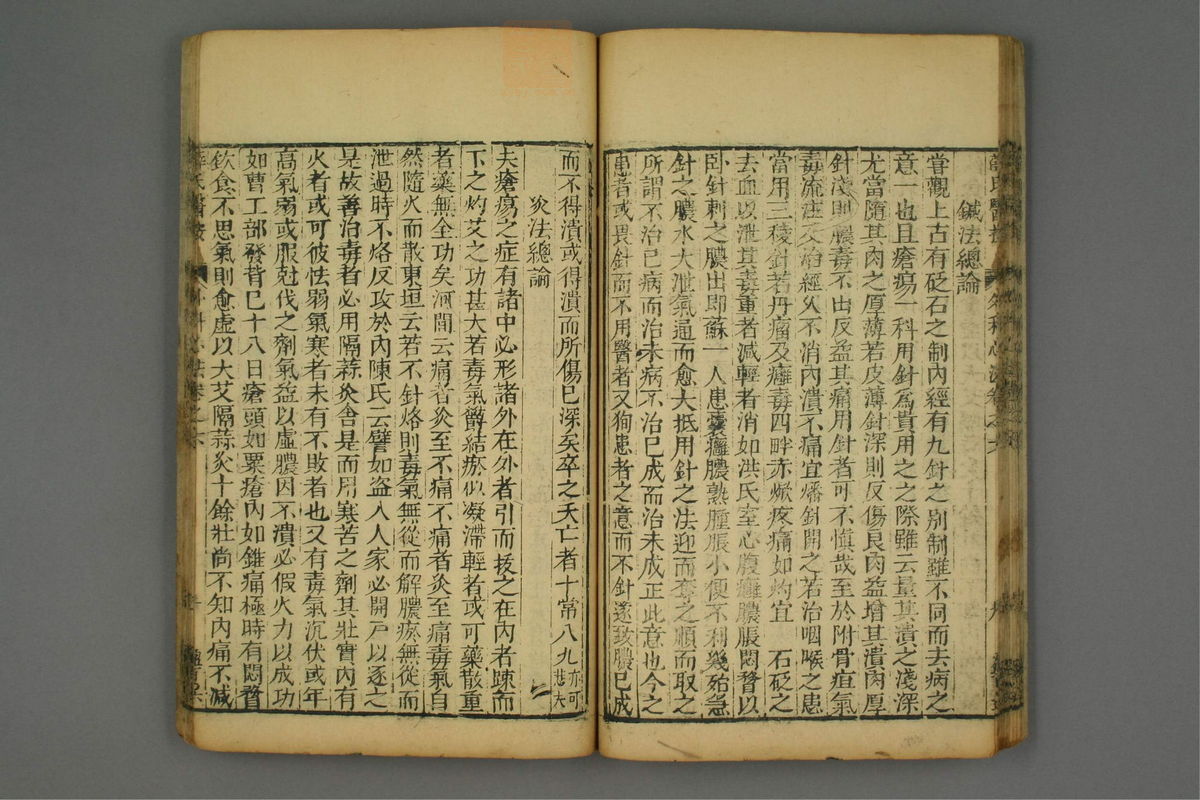 鍼法總論
嘗觀上古有砭石之制內經有九針之別制雖不同而去病之
意一也且瘡瘍一科用針爲貴用之之際雖云量其潰之淺深
尤當隨其肉之厚薄若皮薄針深則反傷良肉益增其潰肉厚
針淺則膿毒不出反益其痛用針者可不愼哉至於附骨疽氣
毒流注及治經久不消內潰不痛宜燔針開之若治咽喉之患
當用三稜針若丹瘤及癰毒四畔赤焮疼痛如灼宜 石砭之
去血以泄其毒重者減輕者消如洪氏室心腹癰膿脹悶瞀以
臥針刺之膿出卽蘇一人患囊癰膿熟腫脹小便不利幾殆急
針之膿水大泄氣通而愈大抵用針之法迎而奪之順而取之
所謂不治已病而治未病不治已成而治未成正此意也今之
患者或畏針而不用醫者又狥患者之意而不針遂致膿已成
而不得潰或得潰而所傷已深矣卒之夭亡者十常八九亦可哉夫
灸法總論
夫瘡瘍之症有諸中必形諸外在外者引而拔之在內者踈而
下之灼艾之功甚大若毒氣欝結瘀血凝滯輕者或可藥散重
者藥無全功矣河間云痛者灸至不痛不痛者灸至痛毒氣自
然隨火而散東垣云若不針烙則毒氣無從而解膿瘀無從而
泄過時不烙反攻於內陳氏云譬如盗入人家必開戸以逐之
是故善治毒者必用隔蒜灸舍是而用寒苦之劑其壯實內有
火者或可彼怯弱氣寒者未有不敗者也又有毒氣沉伏或年
高氣弱或服尅伐之劑氣益以虛膿因不潰必假火力以成功
如曹工部發背已十八日瘡頭如粟瘡內如錐痛極時有悶瞀
飮食不思氣則愈虛以大艾隔蒜灸十餘壯尚不知內痛不減